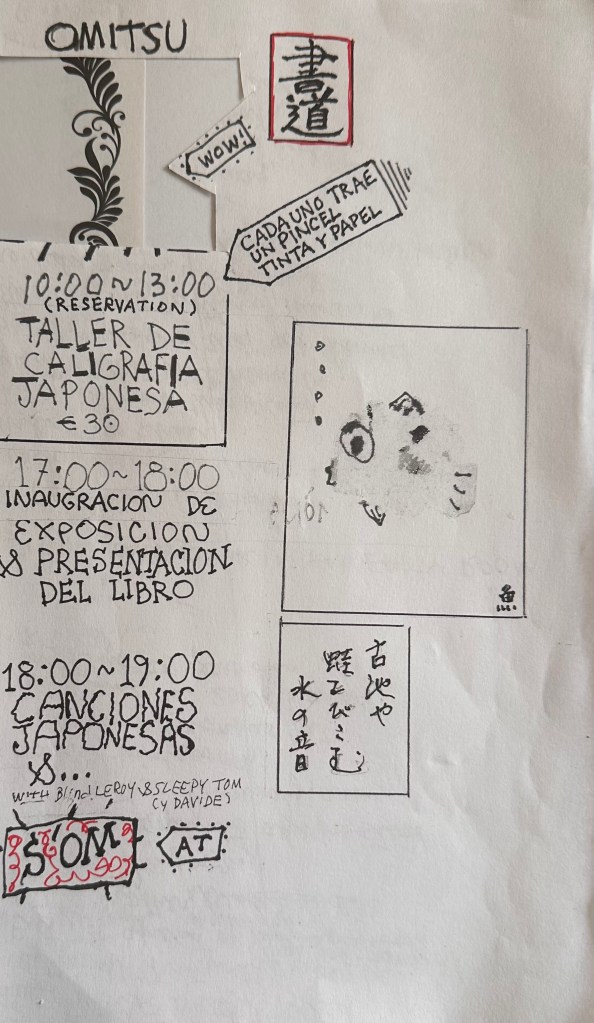 OMITSU
書道
WOW!
CADA UNO TRAE
UN PINCEL
TINTA Y PAPEL
10:00~13:00
(RESERVATION)
TALLER DE
CALIGRAFIA
JAPONESA
€30
17:00~18:00
INAUGRACION DE
EXPOSICION
& PRESENTACION
DEL LIBRO
魚
古池や
蛙とびこむ
水の音
18:00~19:00
CANCIONES
JAPONESAS
&...
with Blind LEROY & SLEEPY TOM
(y DAVIDE)
S'OM
AT